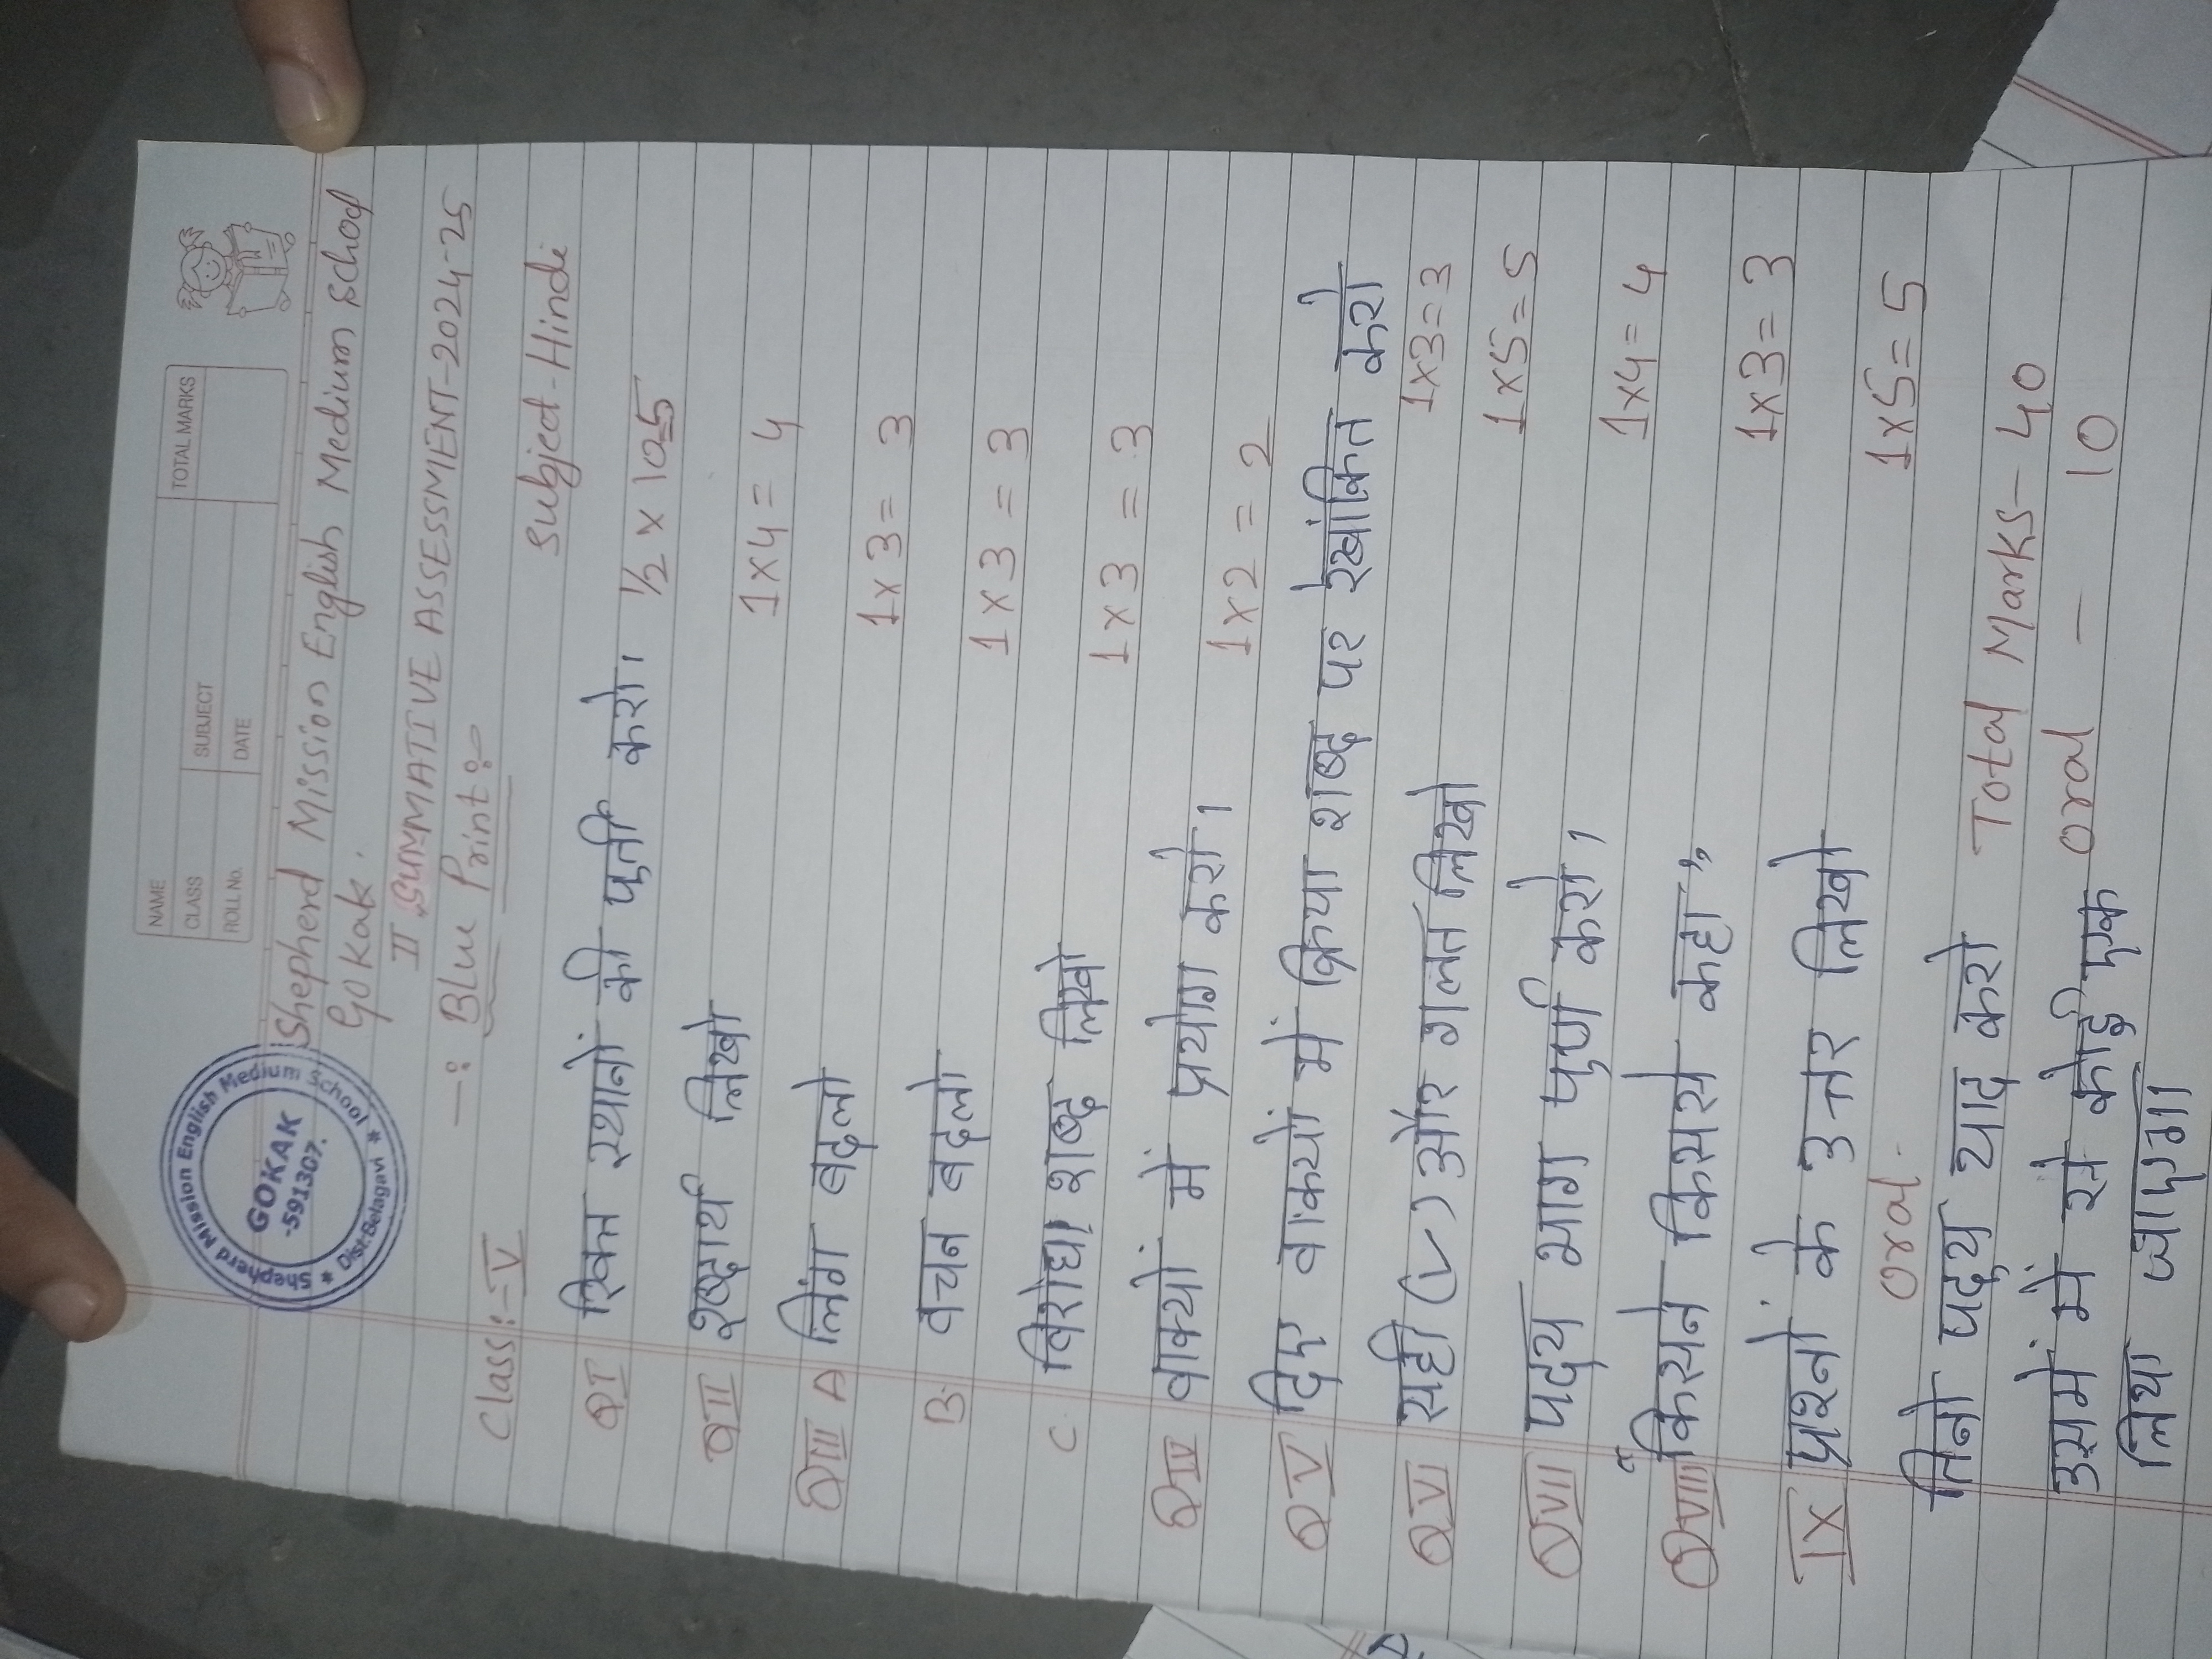 NAME
TOTAL MARKS
CLASS
SUBJECT
ROLL No.
DATE
Shepherd Mission English Medium School
GOKAK
-591307.
* Dist:Belagavi *
Shepherd Mission English Medium School
Gokak.
II SUMMATIVE ASSESSMENT-2024-25
—: Blue Print:-
Class:- V
Subject-Hindi
QI रिक्त स्थानों की पूर्ती करो। 1/2 x 10=5
QII शब्दार्थ लिखो 1x4 = 4
QIII A लिंग बदलो 1x3 = 3
B. वचन बदलो 1x3 = 3
C. विरोधी शब्द लिखो 1x3 = 3
QIV वाक्यो में प्रयोग करो। 1x2 = 2
QV दिए वाक्यों में क्रिया शब्द पर रेखांकित करो
1x3=3
QVI सही (✓) और गलत लिखो 1x5=5
QVII पद्य भाग पुर्ण करो। 1x4=4
QVIII "किसने किससे कहा" 1x3=3
IX प्रश्नों के उत्तर लिखो 1x5=5
oral.
तिनो पद्य याद करो Total Marks-40
उसमें में से कोई एक oral — 10
लिया जाएगा